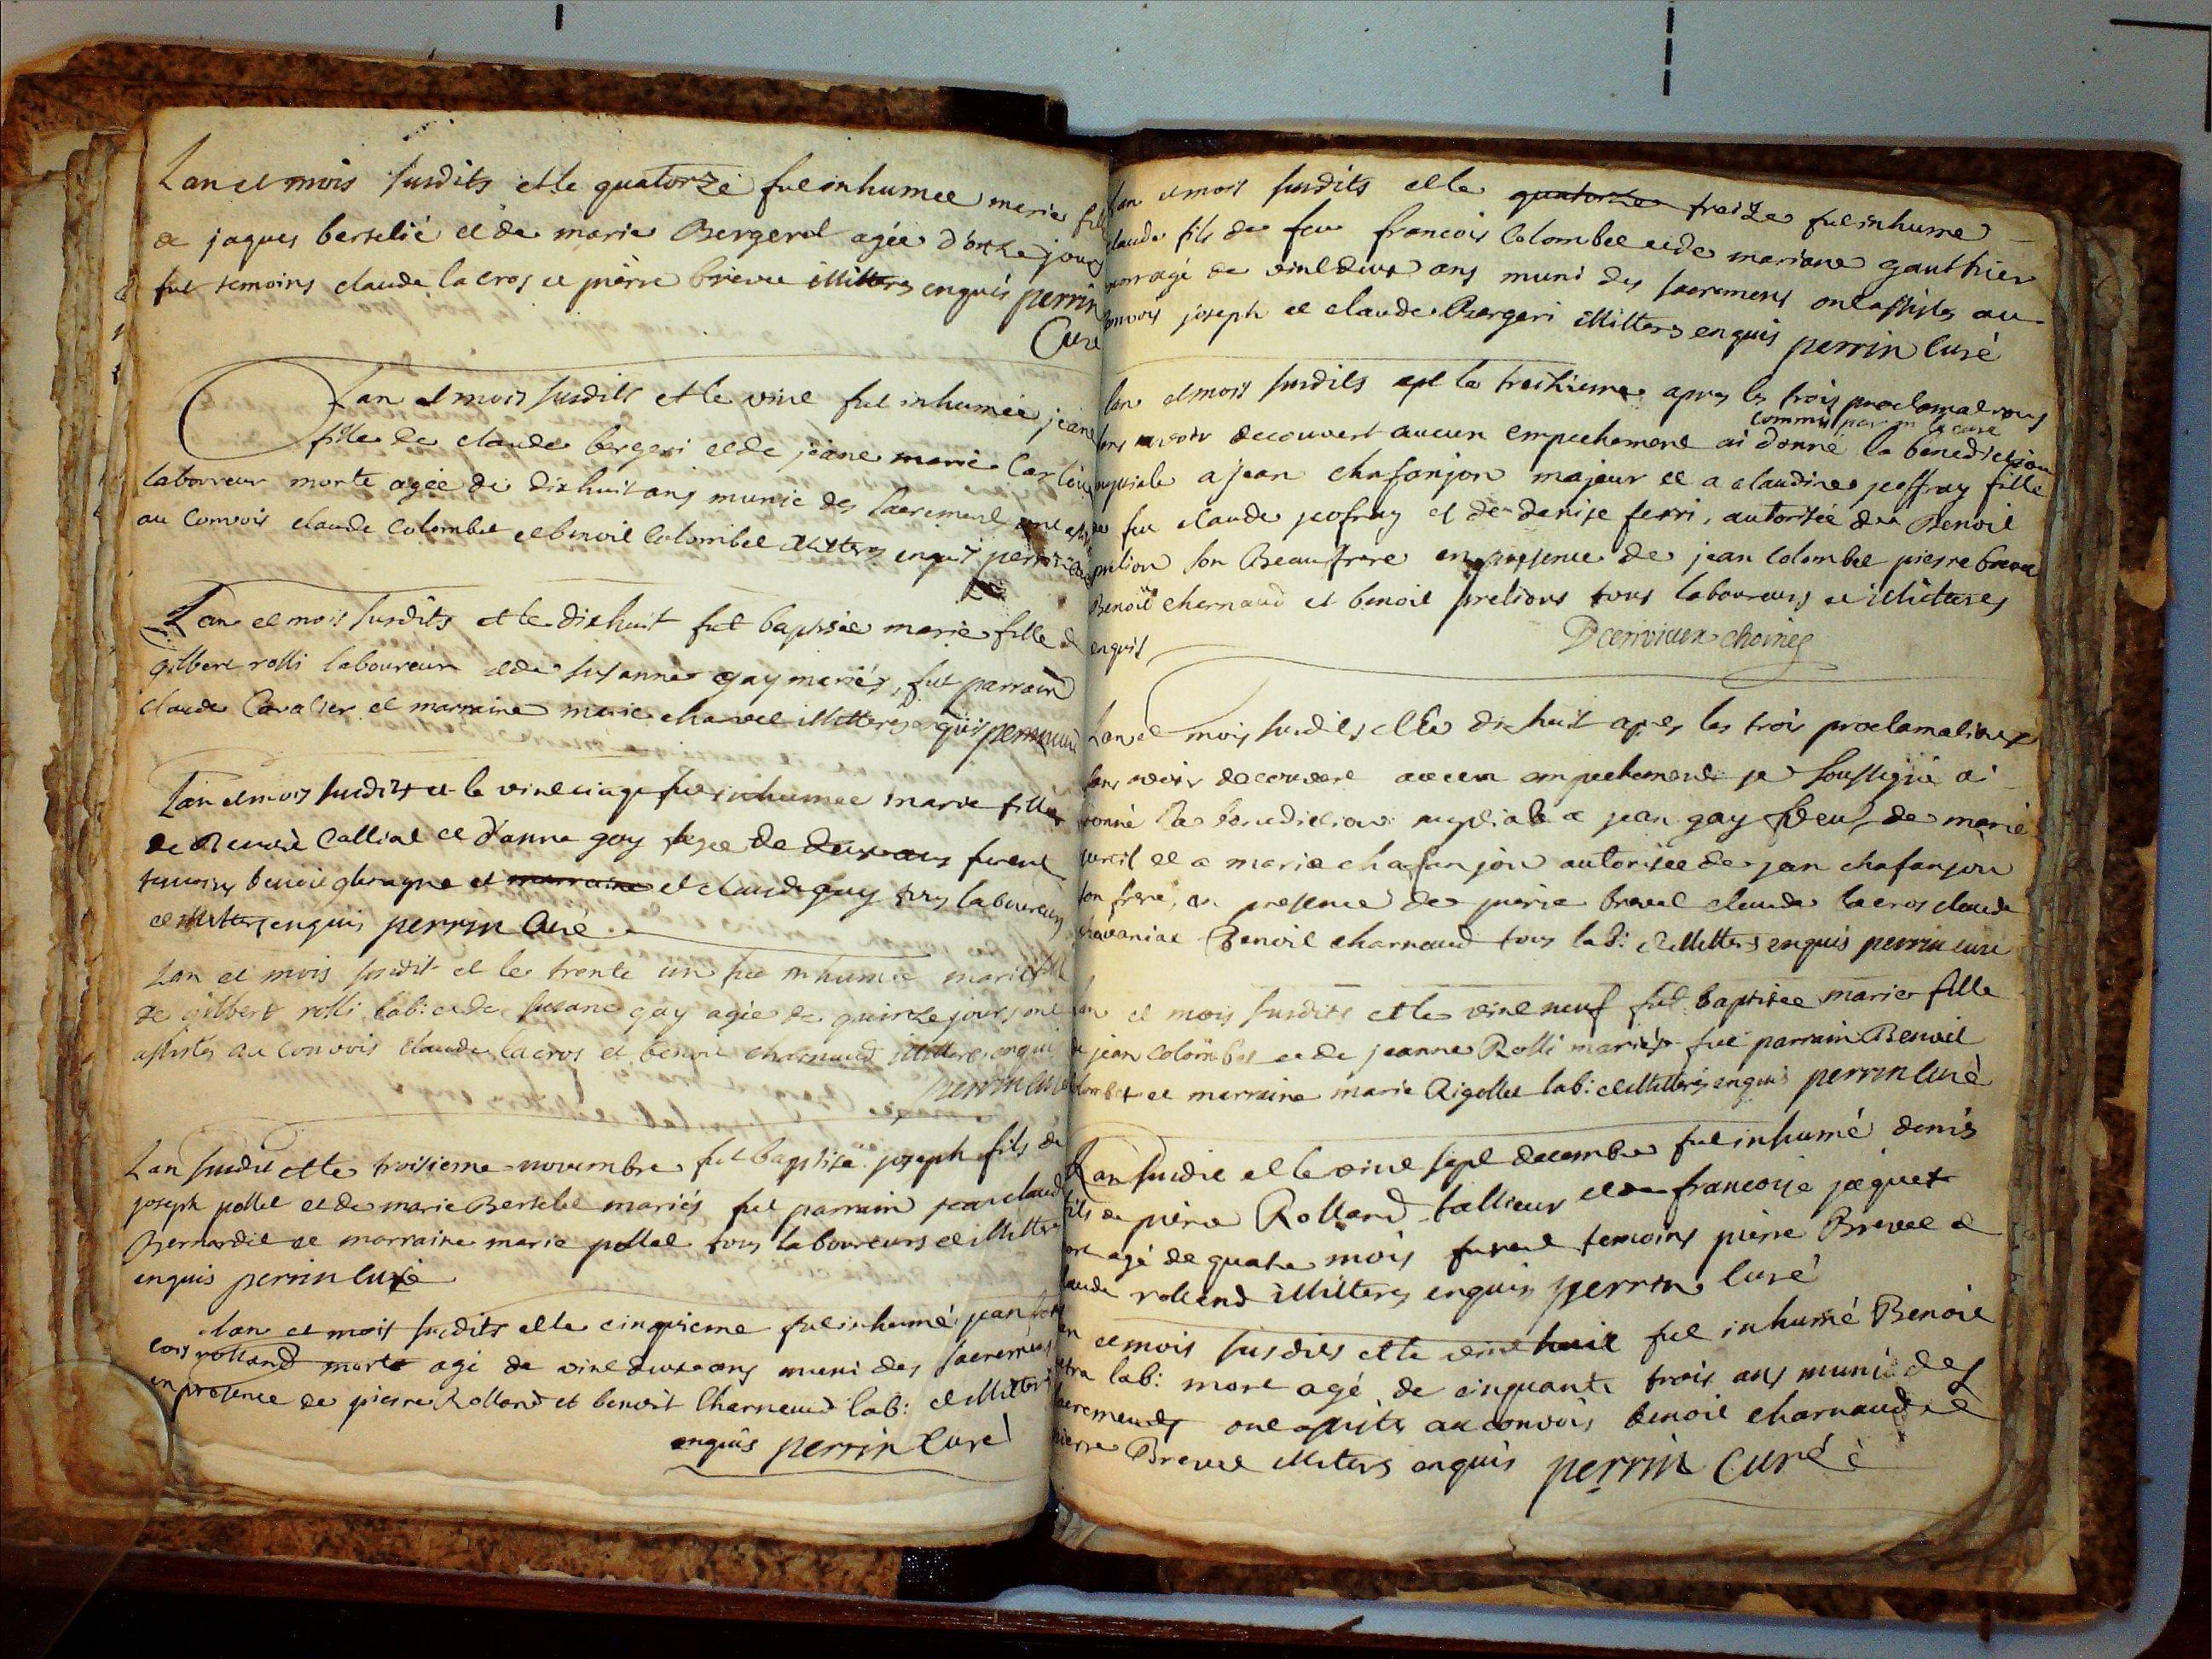 Lan et mois susdits et le quatorze fut inhumee marie fille
de jaques berselié et de marie Bergerol agée d'onze jours
fut temoins claude lacros et pierre brevet illitters enquis perrin
Curé
Lan et mois susdits et le vint fut inhumée jeane
fille de claude bergeri et de jeane marie
laboureur morte agée de dixhuit ans munie des sacrement ont
au convois claude colombet et benoit colombet illitters enquis perrin
Lan et mois susdits et le dixhuit fut baptisée marie fille de
gilbert rolli laboureur et de susanne gay mariés, fut parrain
claude Cavalier et marraine marie charvet illitteres enquis perrin curé
Lan et mois susdits et le vint cinq fut inhumée marie fille
de Benoit Callial et d'anne gay agee de deux ans furent
temoins benoit et marraine et claude gay tous laboureurs
et illitters enquis perrin Curé
Lan et mois susdit et le trente un fut inhumée marie fille
de gilbert rolli lab: et de susane gay agée de quinze jours ont
assistés au convois claude lacros et benoit charnaud illitters enquis
perrin curé
Lan susdit et le troisieme novembre fut baptisé joseph fils de
joseph pollet et de marie Berselié mariés fut parrain jean claude
Bernardil et marraine marie pollet tous laboureurs et illitters
enquis perrin curé
Lan et mois susdits et le cinquieme fut inhumé jean fran
cois rolland morte agé de vint deux ans muni des sacremens
en presence de pierre Rolland et benoit Charnaud lab: et illitters
enquis perrin curé
lan et mois susdits et le quatorze treize fut inhumé
claude fils de feu francois Colombet et de mariane gauthier
mort agé de vint deux ans muni des sacremens ont assistés au
convois joseph et claude Bergeri illitters enquis perrin Curé
lan et mois susdits et le treizieme apres les trois proclamations
commis par m le curé
sans avoir decouvert aucun empechement ai donné la benediction
nuptiale a jean chafanjon majeur et a claudine jeoffray fille
de feu claude jeofray et de denise ferri, autorisée de Benoit
prelion son Beaufrere en presence de jean Colombet pierre brevet
Benoit charnaud et benoit prelions tous laboureurs et illiteres
enquis
Lan et mois susdits et le dix huit apres les trois proclamations
sans avoir decouvert aucun empechement je soussigné ai
donné la benediction nuptiale a jean gay de marie
et a marie chafanjon autorisée de jean chafanjon
son frere, en presence de pierre brevet claude lacros claude
Benoit charnaud tous lab: et illitters enquis perrin curé
lan et mois susdits et le vint neuf fut baptisée marie fille
de jean colombet et de jeanne Rolli mariés fut parrain Benoit
colombet et marraine marie Rigollet lab: et illitters enquis perrin curé
Lan susdit et le vint sept decembre fut inhumé denis
fils de pierre Rolland tallieur et de francoise jaquet
mort agé de quatre mois furent temoins pierre Brevet et
claude rolland illitters enquis perrin curé
lan et mois susdits et le vint huit fut inhumé Benoit
lab: mort agé de cinquante trois ans muni des
sacrements ont assisté au convois benoit charnaud et
pierre Brevet illiters enquis perrin Curé